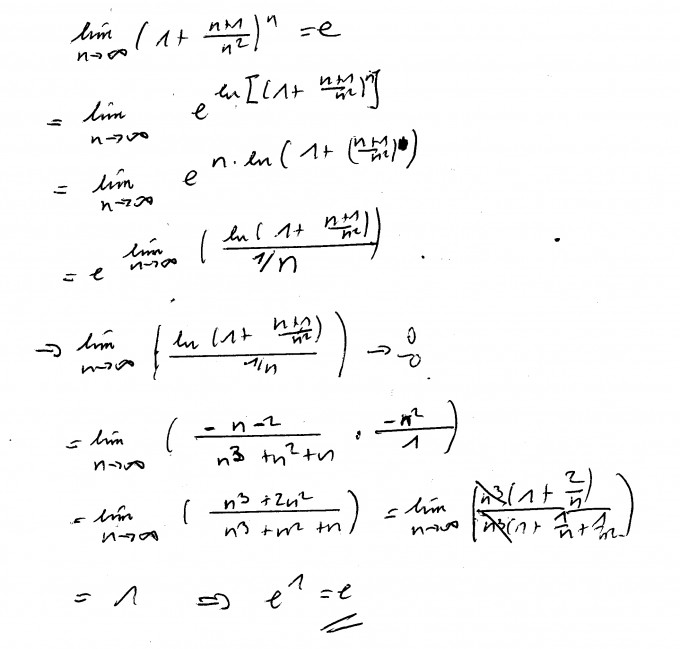 lim n→∞ (1 + (n+1)/n²)ⁿ = e
= lim n→∞ e^(ln[(1 + (n+1)/n²)ⁿ])
= lim n→∞ e^(n · ln(1 + ((n+1)/n²)))
= e^(lim n→∞ (ln(1 + (n+1)/n²) / (1/n)))
→ lim n→∞ (ln(1 + (n+1)/n²) / (1/n)) → 0/0
= lim n→∞ ((-n-2)/(n³+n²+n) · (-n²)/1)
= lim n→∞ ((n³+2n²)/(n³+n²+n)) = lim n→∞ (n³(1 + 2/n) / n³(1 + 1/n + 1/n²))
= 1 ⇒ e¹ = e